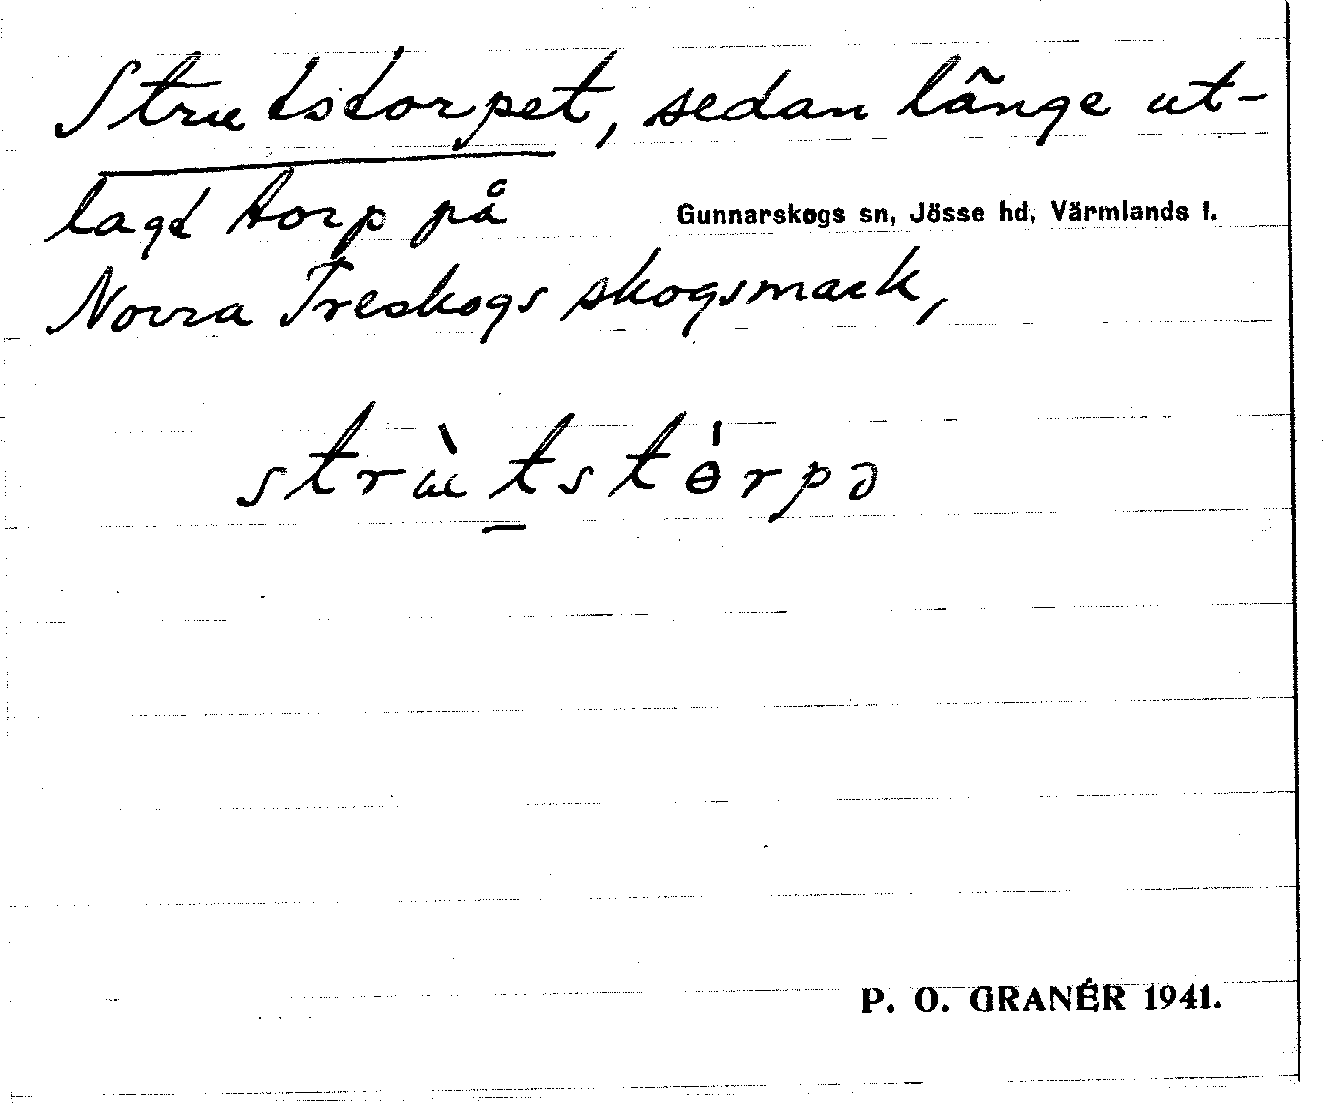 Strutstorpet, sedan länge ut-
lagt torp på
Gunnarskogs sn, Jösse hd, Värmlands l.
Norra Treskogs skogsmark,
strùtstɵ́rpə
P. O. GRANÉR 1941.